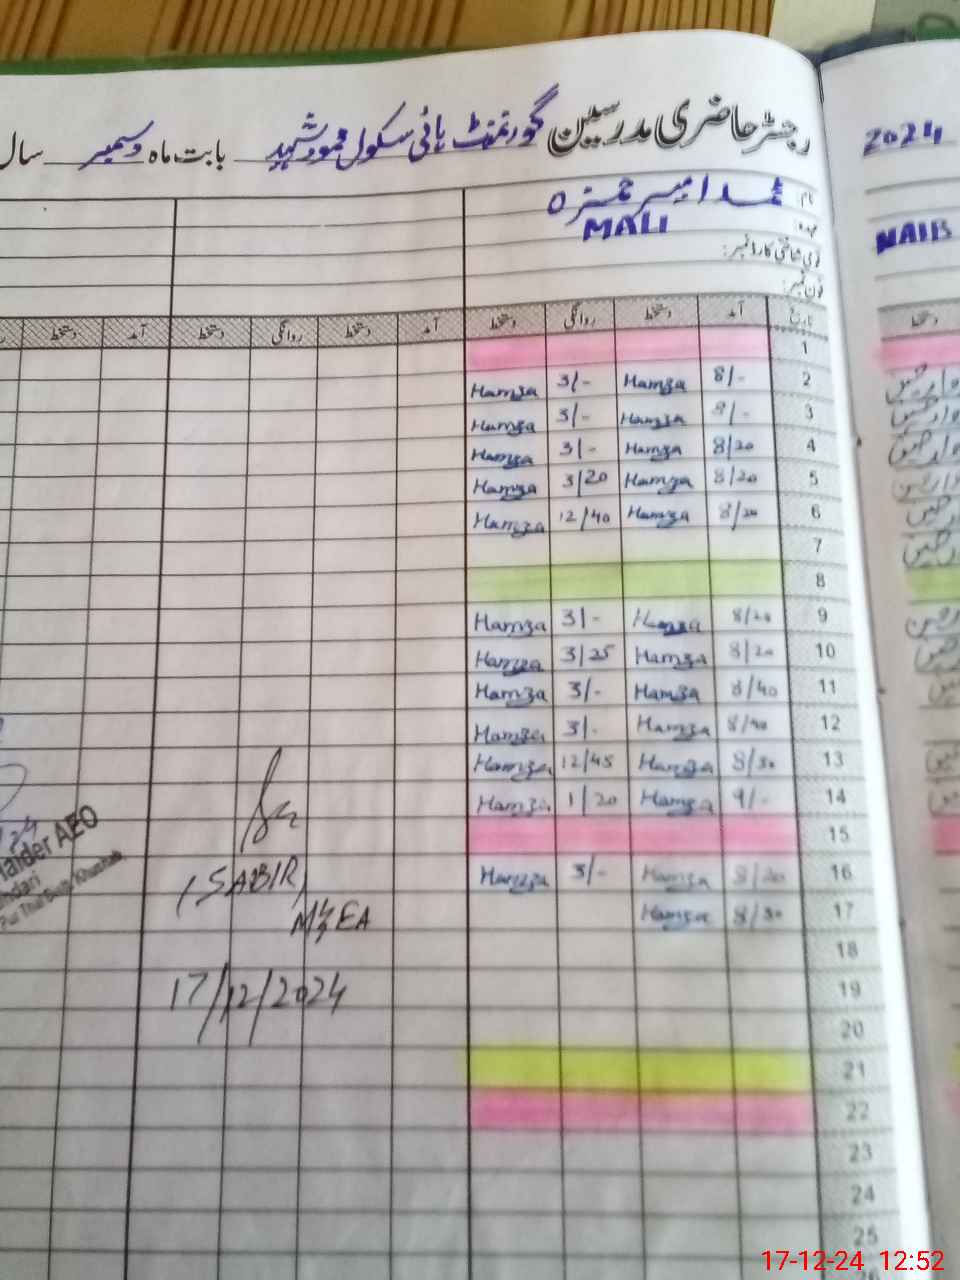 رجسٹر حاضری مدرسین گورنمنٹ ہائی سکول محمود شہید بابت ماہ دسمبر سال
2024
نام: محمد امیر حمزہ
عہدہ: MALI
NAIB
قومی شناختی کارڈ نمبر:
فون نمبر:
تاریخ آمد دستخط روانگی دستخط آمد دستخط روانگی دستخط آمد دستخط
دستخط
1
2 8/- Hamza 3/- Hamza
3 8/- Hamza 3/- Hamza
4 8/20 Hamza 3/- Hamza
5 8/20 Hamza 3/20 Hamza
6 8/20 Hamza 12/40 Hamza
7
8
9 8/20 Hamza 3/- Hamza
10 8/20 Hamza 3/25 Hamza
11 8/40 Hamza 3/- Hamza
12 8/40 Hamza 3/- Hamza
13 8/30 Hamza 12/45 Hamza
14 9/- Hamza 1/20 Hamza
15
16 8/20 Hamza 3/- Hamza
17 8/30 Hamza
18
19
20
21
22
23
24
25
Haider AEO
(SABIR)
M&EA
17/12/2024
17-12-24 12:52